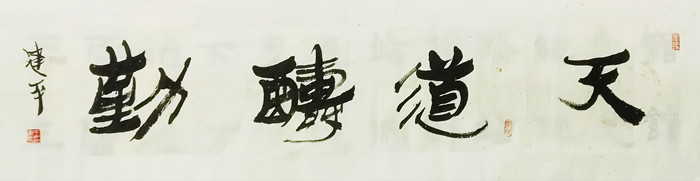 天道酬勤
建平